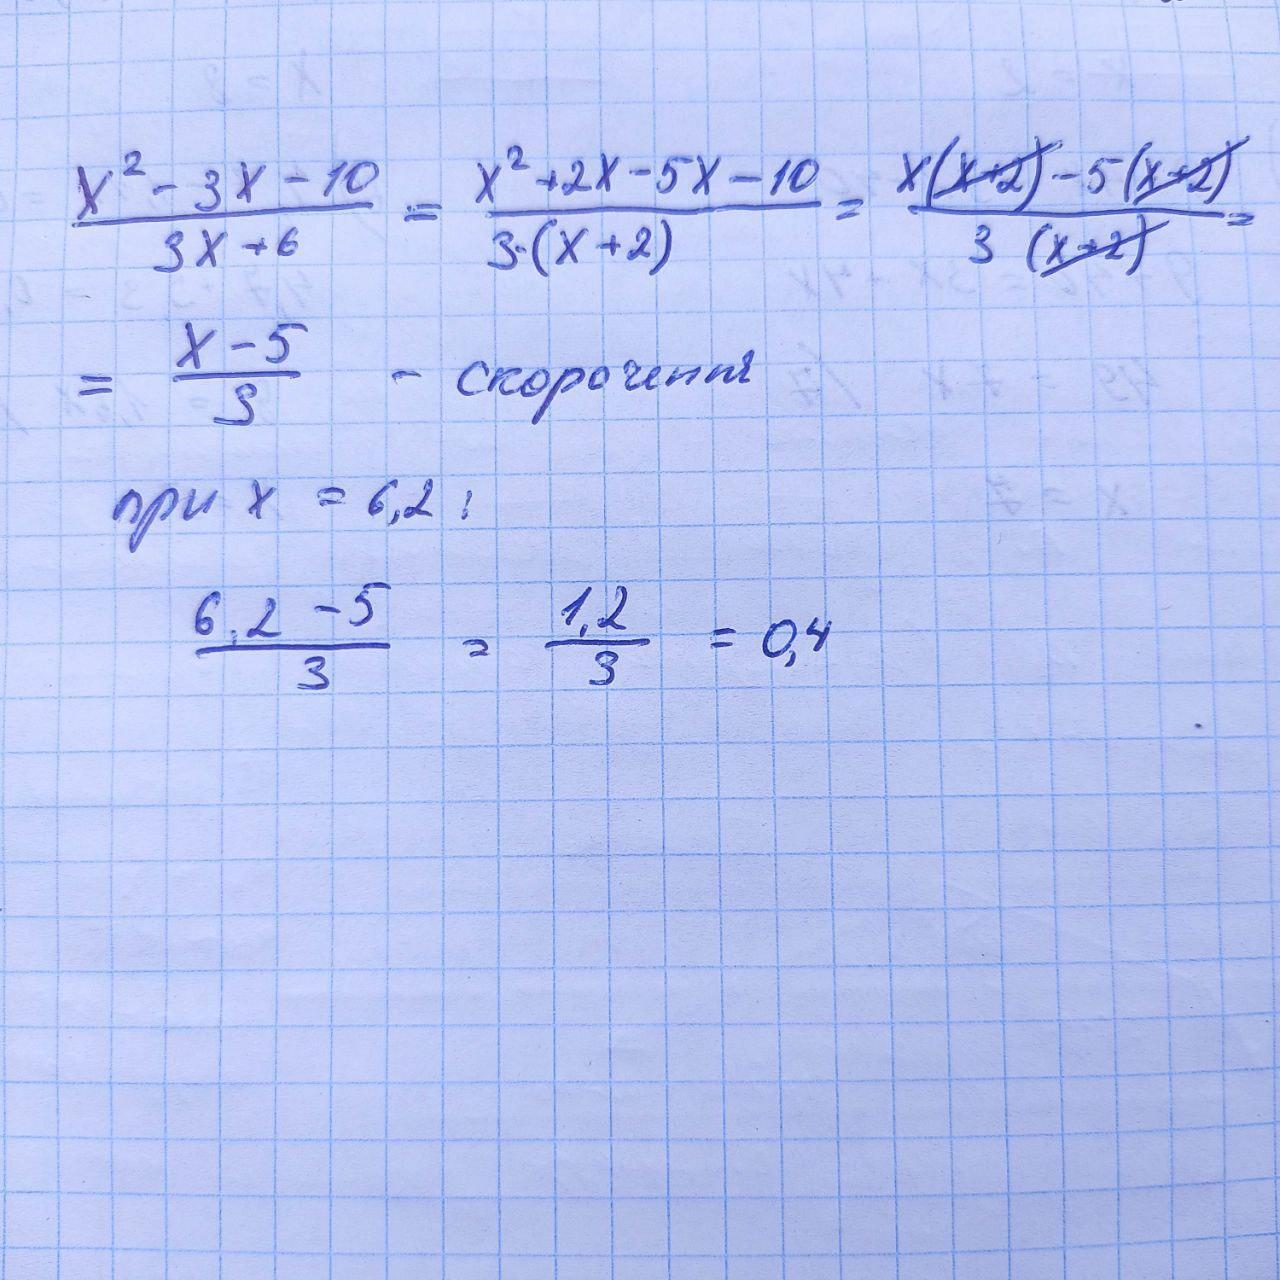 x² - 3x - 10 / 3x + 6 = x² + 2x - 5x - 10 / 3·(x + 2) = x(x+2) - 5(x+2) / 3 (x+2) =
= x - 5 / 3 - скорочення
при x = 6,2 :
6,2 - 5 / 3 = 1,2 / 3 = 0,4